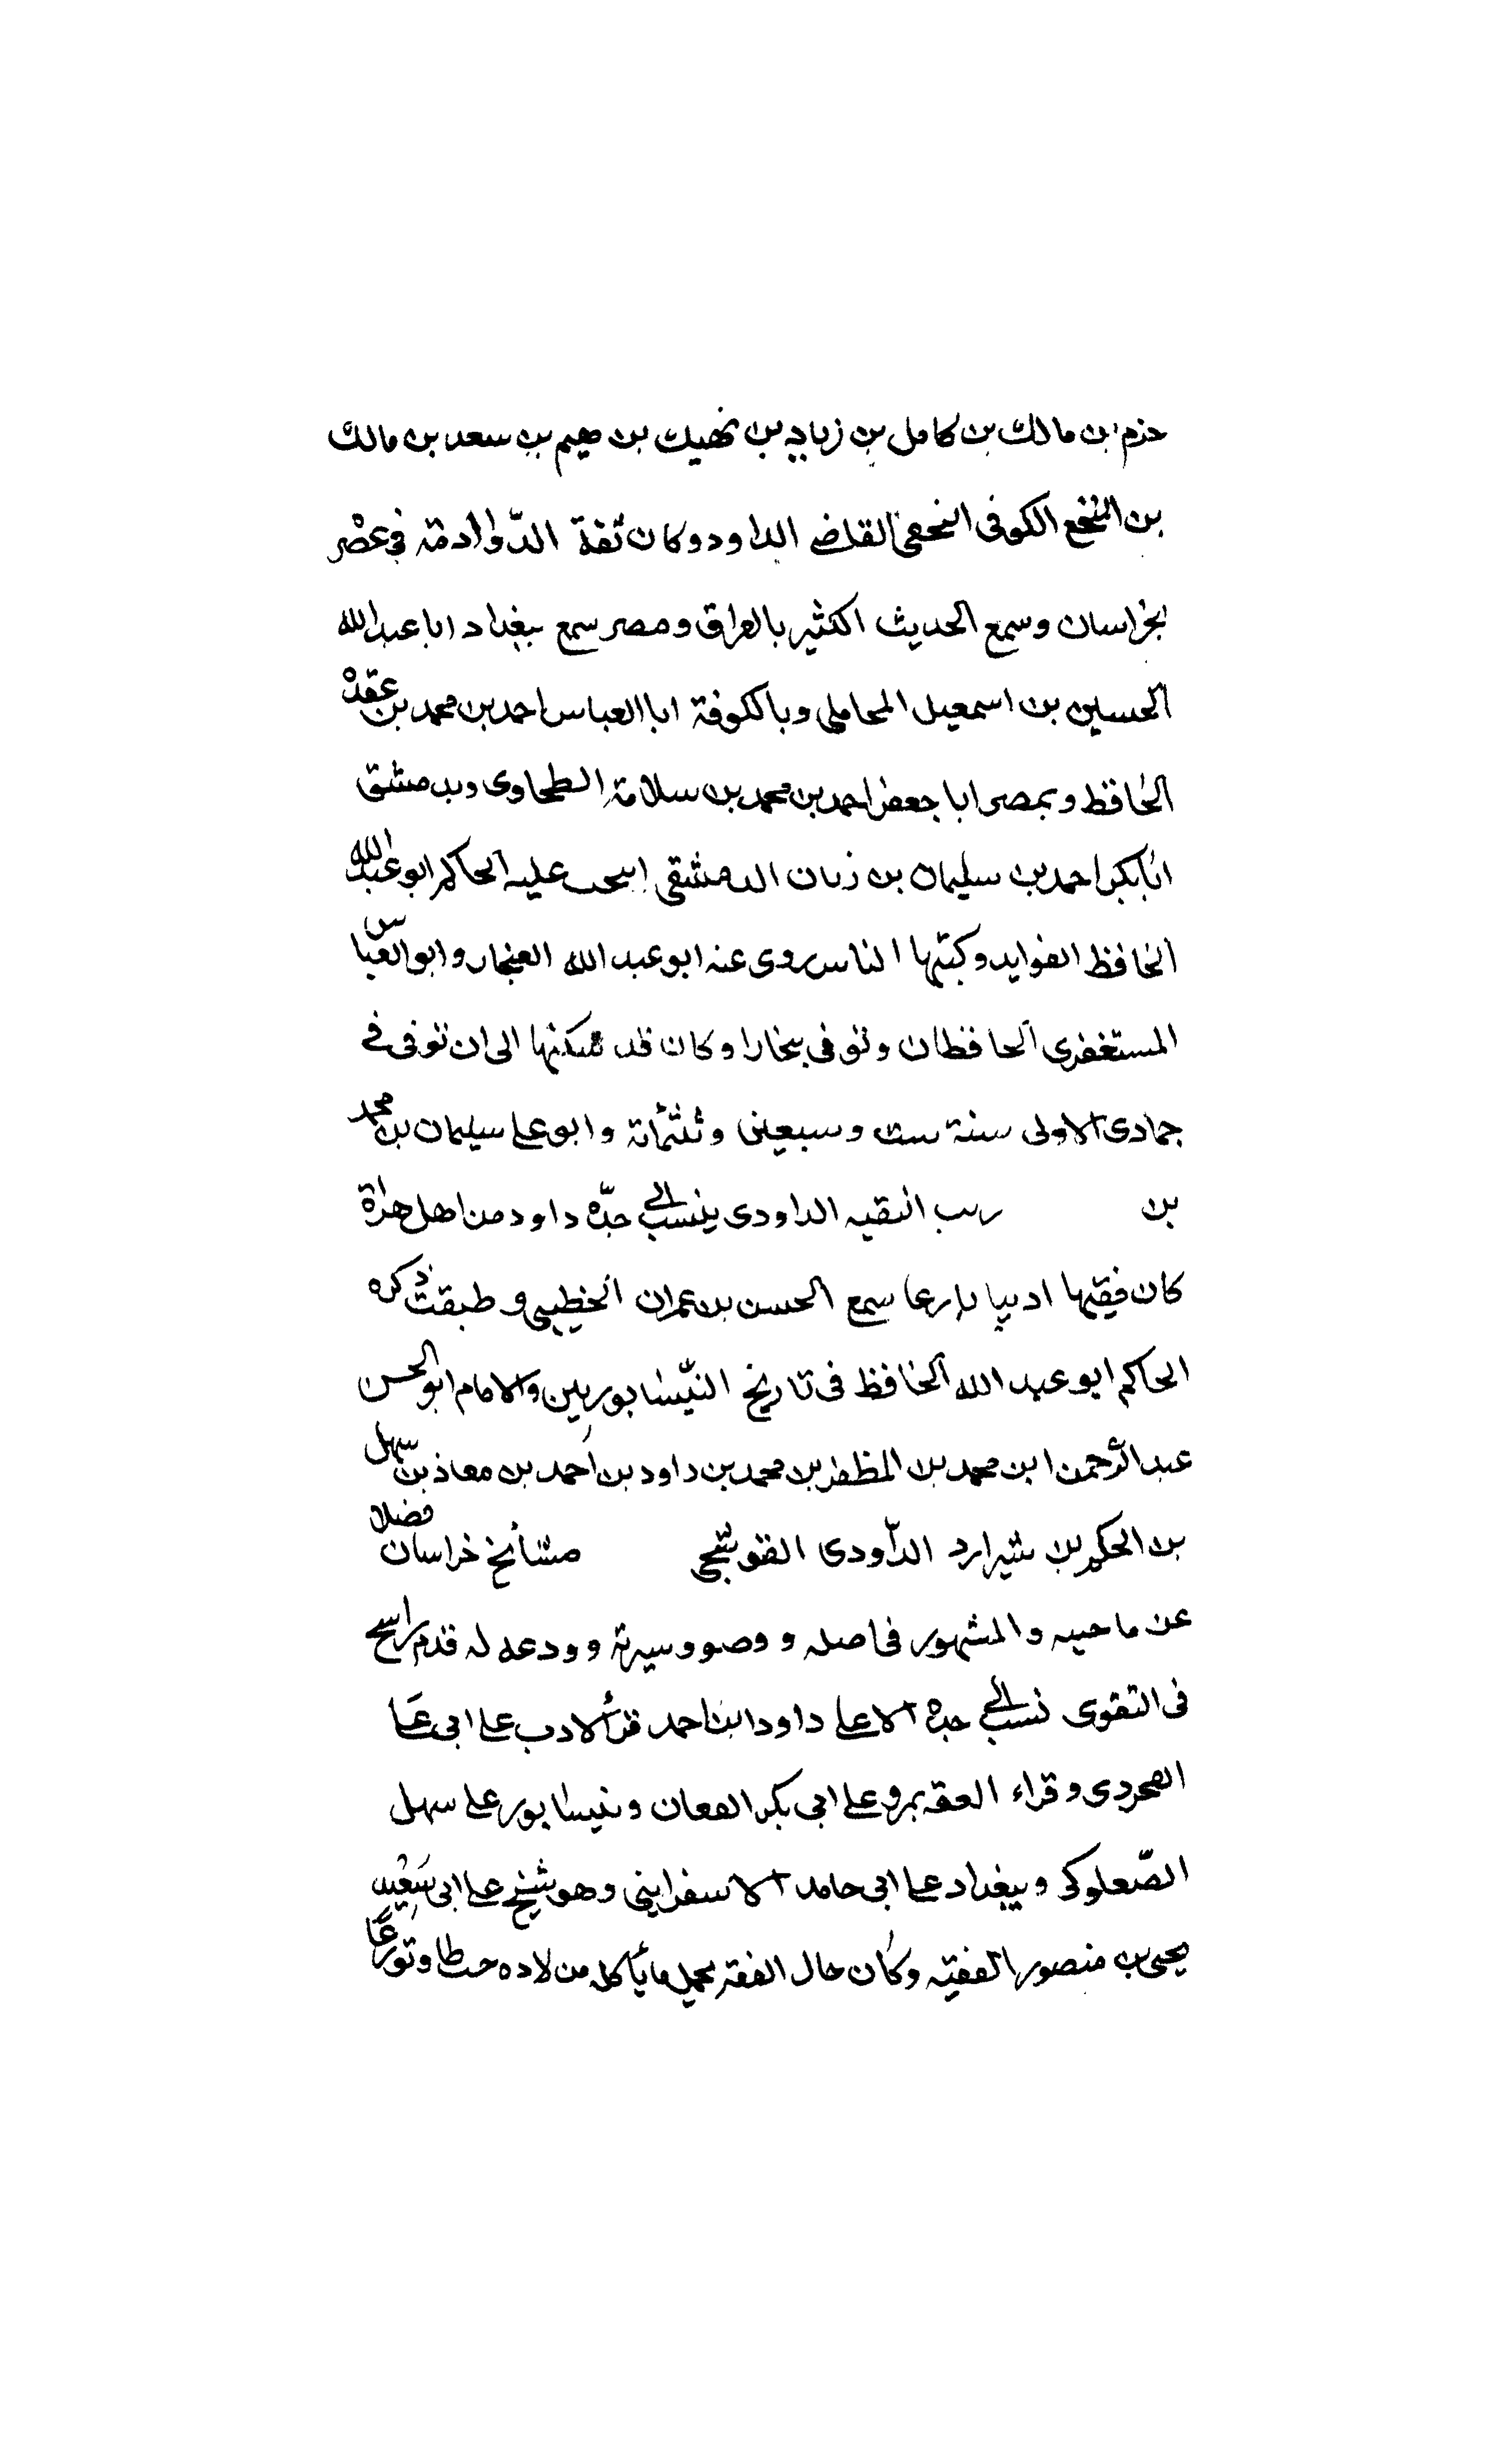 حزم بن مالك بن كامل بن زياد بن نهيك بن هيم بن سعد بن مالك
بن النخع الكوفى النخعى القاضى الداودى وكان ثقة الدواودية فى عصره
بخراسان وسمع الحديث الكثير بالعراق ومصر سمع ببغداد ابا عبد الله
الحسين بن اسمعيل المحاملى وبالكوفة ابا العباس احمد بن محمد بن عقدة
الحافظ وبمصر ابا جعفر احمد بن محمد بن سلامة الطحاوى وبدمشق
ابا بكر احمد بن سليمان بن زبان الدمشقى انتخب عليه الحاكم ابو عبد الله
الحافظ الفوايد وكتبها الناس روى عنه ابو عبد الله الغنجار وابو العباس
المستغفرى الحافظان وتوفى ببخارا وكان قد سكنها الى ان توفى فى
جمادى الاولى سنة ست وسبعين وثلثمائة وابو على سليمان بن محمد
بن الفقيه الداودى ينسب الى جدّه داود من اهل هراة
كان فقيها اديبا بارعا سمع الحسن بن عمران الخطيبى وطبقته ذكره
الحاكم ابو عبد الله الحافظ فى تاريخ النّيسابوريين والامام ابو الحسن
عبد الرحمن ابن محمد بن المظفر بن محمد بن داود بن احمد بن معاذ بن سهل
بن الحكم بن شيرارد الدّاودى الفوشنجى مشائخ خراسان فضلا
عن ناحيته والمشهور فى اصله وسيرته وورعه له قدم راسخ
فى التقوى نسب الى جده الاعلى داود ابن احمد قرأ الادب على ابى على
الفنجردى وقراء الفقه بمرو على ابى بكر القفال وبنيسابور على سهل
الصّعلوكى وببغداد على ابى حامد الاسفراينى وهو شيخ على ابى سعيد
يحيى بن منصور الفقيه وكان حال الفقه يحمل ما يأكله من بلاده احتياطا وتورعا